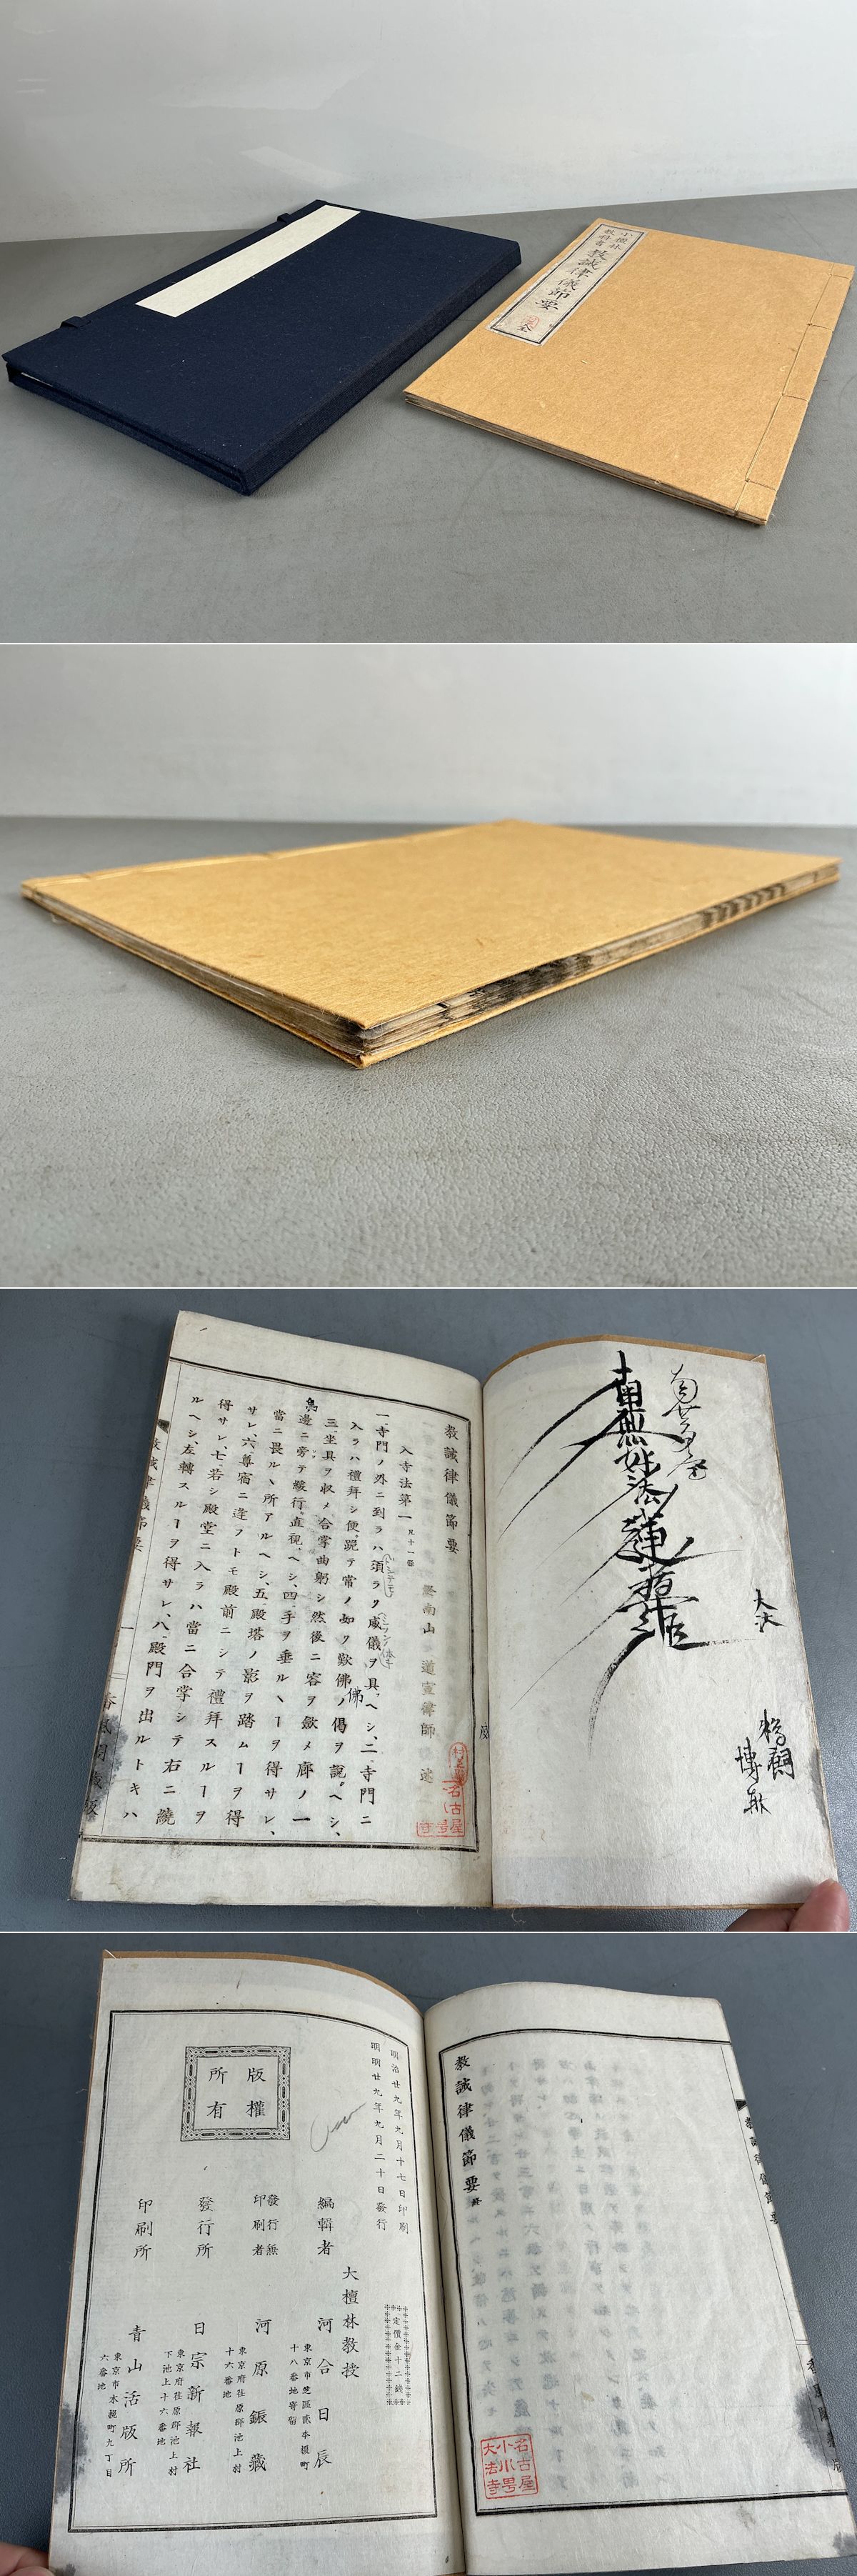 小檀林
教科書
教誡律儀節要
全
南無妙法蓮華経
大法
鵜飼
博
教誡律儀節要
入寺法第一 凡十一條
終南山 道宣律師 述
一、寺門ノ外ニ到ラハ須ラク威儀ヲ具ヘシ、二、寺門ニ
入ラハ禮拜シ便、跪テ常ノ如ク歎佛ノ偈ヲ說ヘシ、
三、坐具ヲ収メ合掌曲躬シ然後ニ容ヲ斂メ廊ノ一
邊ニ旁テ緩行、直視、ヘシ、四、手ヲ垂ルヽヿヲ得サレ、
當ニ畏ルヽ所アルヘシ、五、殿塔ノ影ヲ踏ムヿヲ得
サレ、六、尊宿ニ逢フトモ殿前ニシテ禮拜スルヿヲ
得サレ、七、若シ殿堂ニ入ラハ當ニ合掌シテ右ニ繞
ルヘシ、左轉スルヿヲ得サレ、八、殿門ヲ出ルトキハ
教誡律儀節要
佛
名古屋
教誡律儀節要 終
教誡律儀節要
名古屋
大法寺
明治廿九年九月十七日印刷
明治廿九年九月二十日發行
定價金十二錢
版權
所有
大檀林教授
編輯者 河合日辰
東京市芝區二本榎町
十八番地寄留
發行兼
印刷者 河原鋠藏
東京府荏原郡池上村
十六番地
發行所 日宗新報社
東京府荏原郡池上村
下池上十六番地
印刷所 青山活版所
東京市本梘町九丁目
六番地